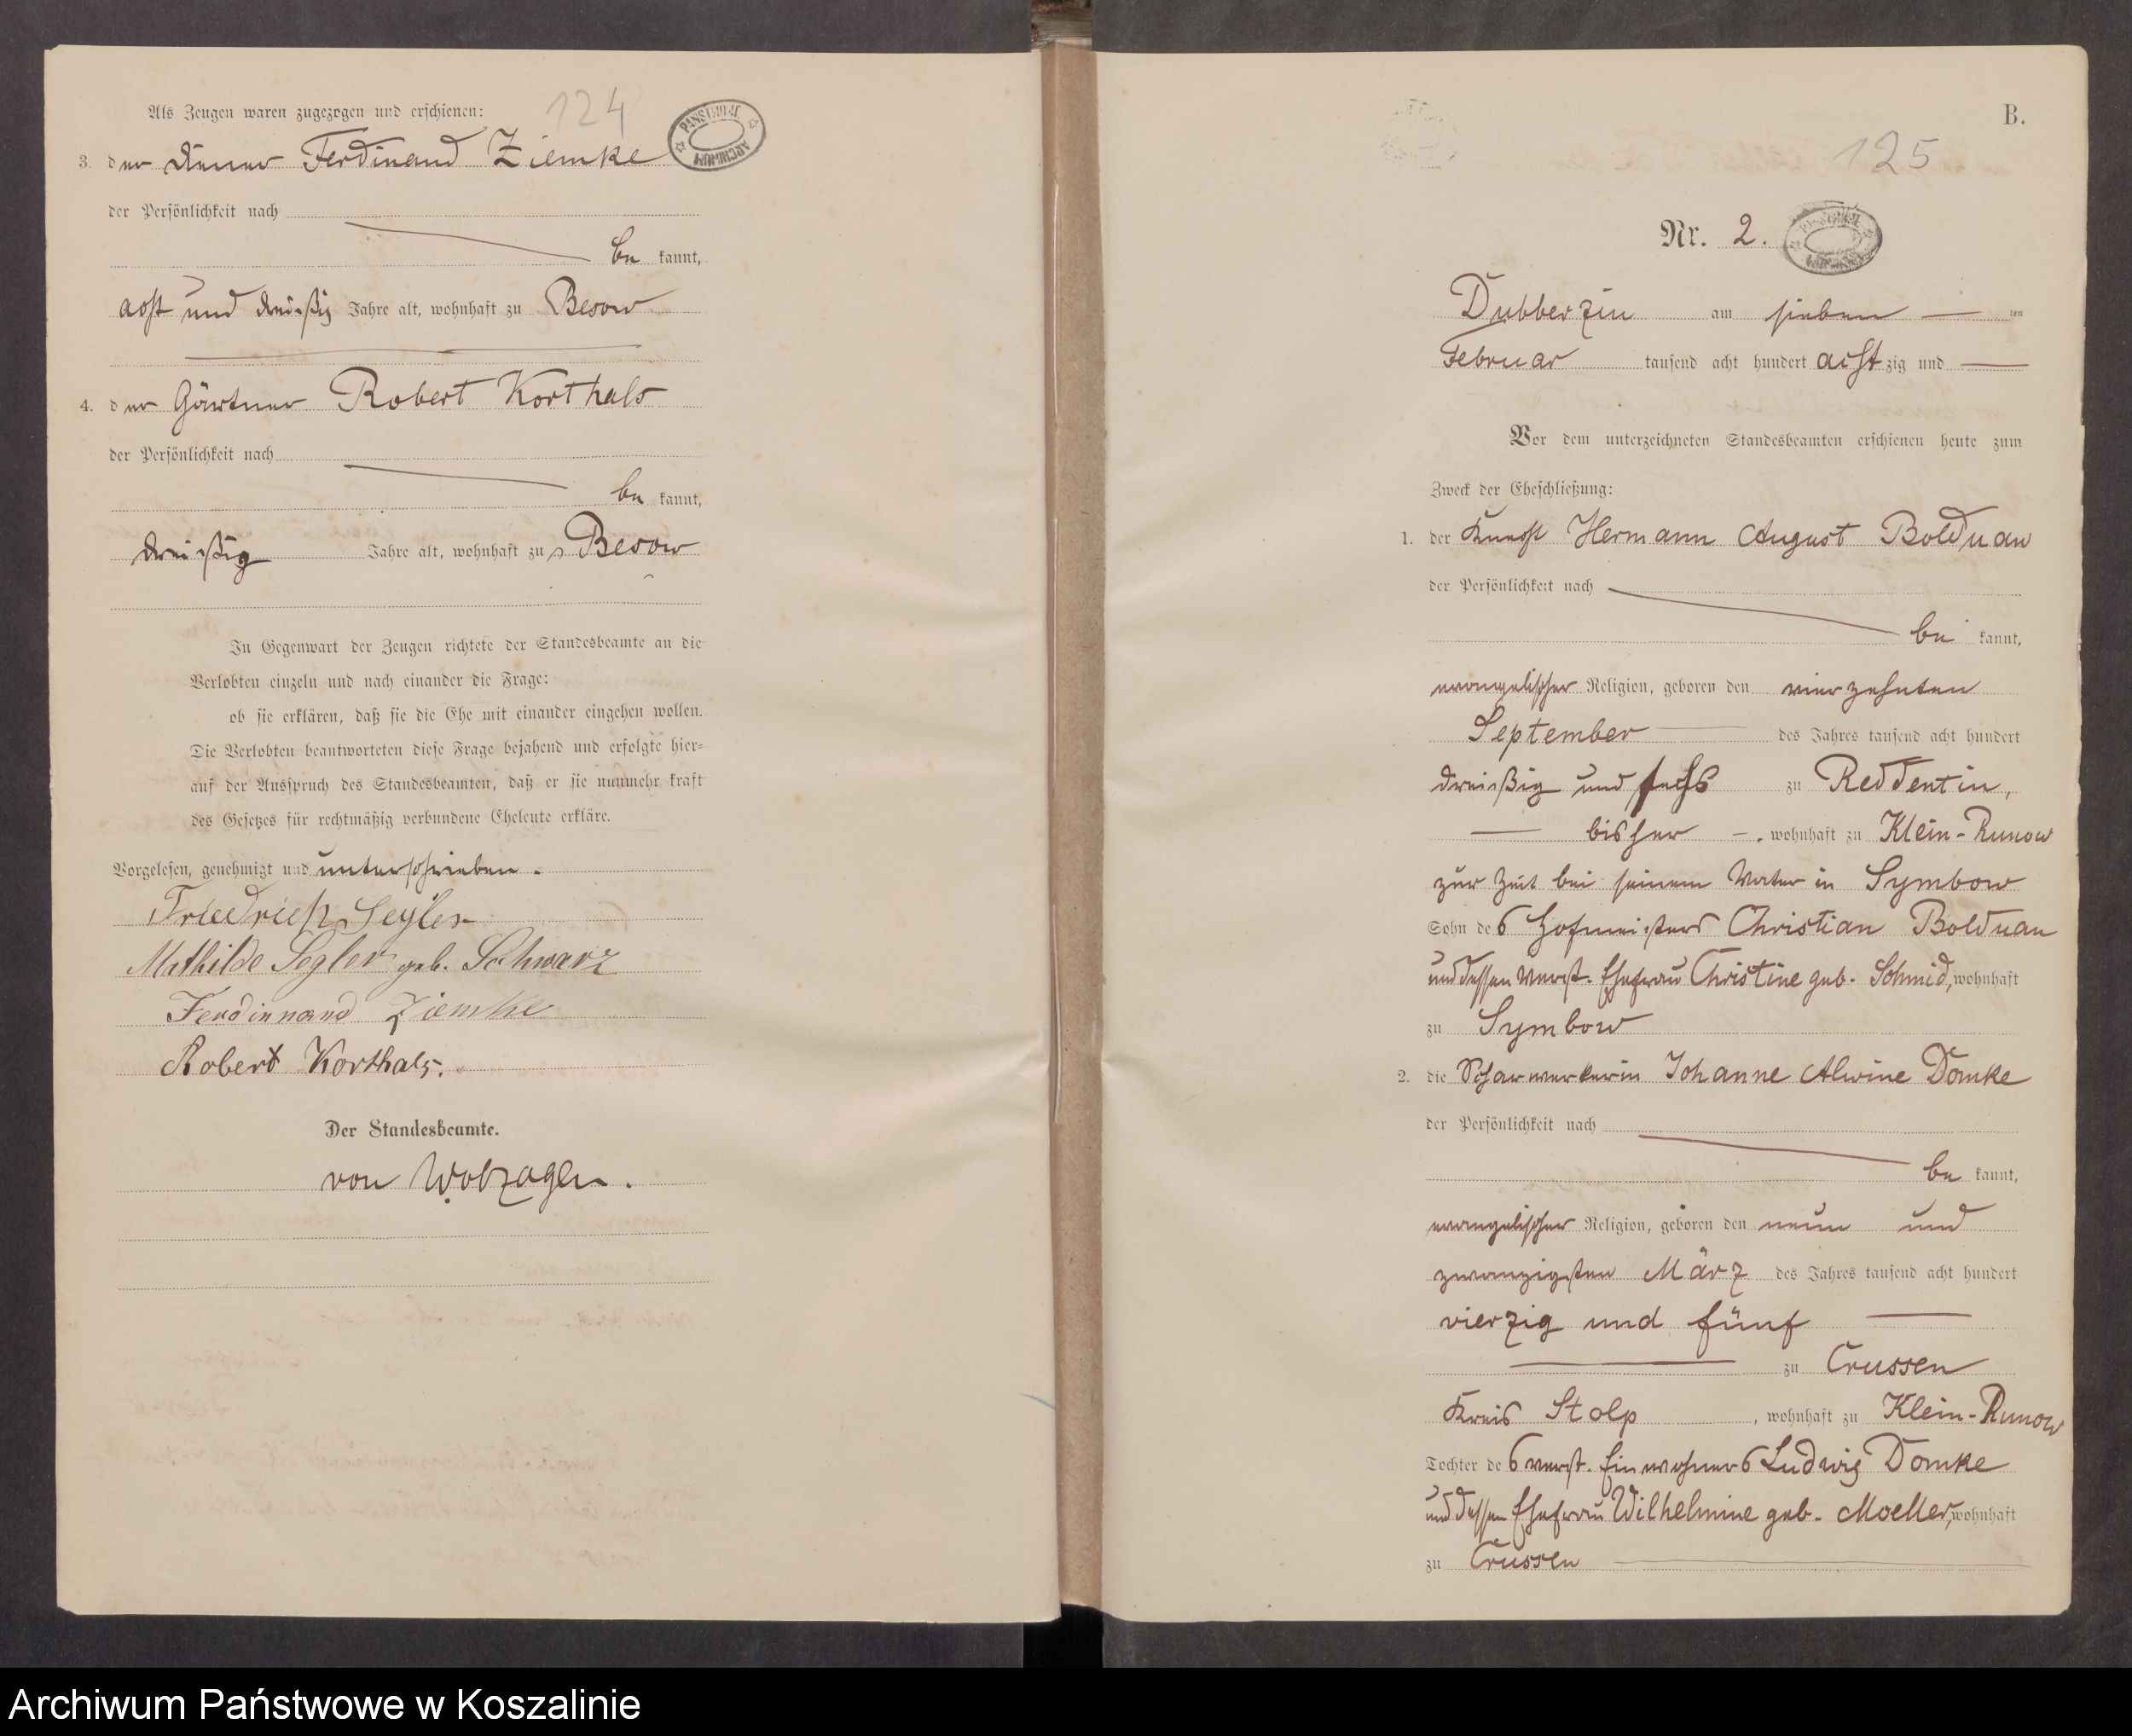 124
Als Zeugen waren zugezogen und erschienen:
PAŃSTWOWE ARCHIWUM
3. der Diener Ferdinand Ziemke
der Persönlichkeit nach
be kannt,
acht und dreißig Jahre alt, wohnhaft zu Besow
4. der Gärtner Robert Korthals
der Persönlichkeit nach
be kannt,
dreißig Jahre alt, wohnhaft zu Besow
In Gegenwart der Zeugen richtete der Standesbeamte an die
Verlobten einzeln und nach einander die Frage:
ob sie erklären, daß sie die Ehe mit einander eingehen wollen.
Die Verlobten beantworteten diese Frage bejahend und erfolgte hier-
auf der Ausspruch des Standesbeamten, daß er sie nunmehr kraft
des Gesetzes für rechtmäßig verbundene Eheleute erkläre.
Vorgelesen, genehmigt und unterschrieben.
Friedrich Segler
Mathilde Segler geb. Schwarz
Ferdinnand Ziemke
Robert Korthals.
Der Standesbeamte.
von
B.
125
Nr. 2.
Dubberzin am sieben ten
Februar tausend acht hundert achtzig und
Vor dem unterzeichneten Standesbeamten erschienen heute zum
Zweck der Eheschließung:
1. der Knecht Hermann August Bolduan
der Persönlichkeit nach
be kannt,
evangelischer Religion, geboren den vierzehnten
September des Jahres tausend acht hundert
dreißig und sechs zu Reddentin,
bisher, wohnhaft zu Klein-Runow
zur Zeit bei seinem Vater in Symbow
Sohn des Hofmeisters Christian Bolduan
und dessen verst. Ehefrau Christine geb. Schmid, wohnhaft
zu Symbow
2. die Scharwerkerin Johanne Alwine Domke
der Persönlichkeit nach
be kannt,
evangelischer Religion, geboren den neun und
zwanzigsten März des Jahres tausend acht hundert
vierzig und fünf
zu Crussen
Kreis Stolp, wohnhaft zu Klein-Runow
Tochter des verst. Einwohners Ludwig Domke
und dessen Ehefrau Wilhelmine geb. Moeller, wohnhaft
zu Crussen
Archiwum Państwowe w Koszalinie